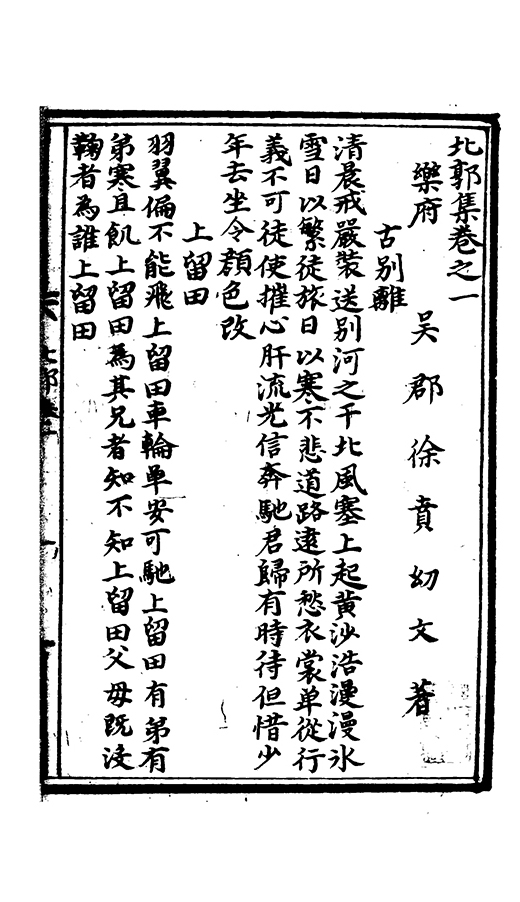 北郭集卷之一
樂府　吴郡徐賁幼文著
古别離
清晨戒嚴裝送别河之干北風塞上起黄沙浩漫漫氷
雪日以繁徒旅日以寒不悲道路逺所愁衣裳单從行
義不可徒使摧心肝流光信奔馳君歸有時待但惜少
年去坐令顔色改
上留田
羽翼偏不能飛上留田車輪单安可馳上留田有弟有
弟寒且飢上留田為其兄者知不知上留田父母既没
鞠者為誰上留田